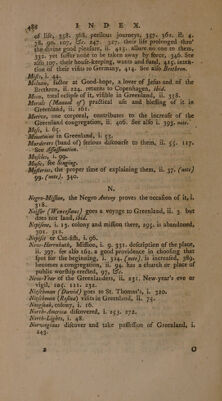 INDEX.
of life, 358. 368, perilous journeys, 357. 361. ii. 4.
78. 90. 107. 167. 247. 327. their life prolonged thro'
the divine good pleasure, ii. 423. allure no one to them,
331. yet suffer none to be taken away by force, 346. See
also 107. their house-keeping, wants and fund, 415. inten-
tion of their visits to Germany, 414. See also Brethren.
Mists, i. 44.
Molthow, factor at Good-hope, a lover of Jesus and of the
Brethren, ii. 224. returns to Copenhagen, ibid.
Moon, total eclipse of it, visible in Greenland, ii. 358.
Morals (Manual of) practical use and blessing of it in
Greenland, ii. 161.
Morice, one corporal, contributes to the increase of the
Greenland congregation, ii. 406. See also i. 393. note.
Moss, i. 65.
Mountains in Greenland, i. 53.
Murderers (band of) serious discourse to them, ii. 55. 117.
See Assassination.
Muscles, i. 99.
Music, see singing.
Mysteries, the proper time of explaining them, ii. 37. (note)
99. (note). 340.
N.
Negro-Mission, the Negro Antony proves the occasion of it, i.
318.
Neisser (Wenceslaus) goes a voyage to Greenland, ii. 3 but
does not land, ibid.
Nepisene, i. 19. colony and mission there, 295. is abandoned,
301. 312.
Nepisets or Cat-fish, i. 96.
New-Herrnhuth, Mission, i. 9. 331. description of the place,
ii. 397. see also 162. a good providence in choosing that
spot for the beginning, i. 324. (note), is increased, 389.
becomes a congregation, ii. 94. has a church or place of
public worship erected, 97, &c.
New-Year of the Greenlanders, ii. 231. New-year's eve or
vigil, 105. 121. 232.
Nitschman (David) goes to St. Thomas's, i. 320.
Nitschman (Rosina) visits in Greenland, ii. 75.
Noogsoak, colony, i. 16.
North-America discovered, i. 253. 272.
North-Lights, i. 48.
Norwegians discover and take possession of Greenland, i.
243.
O